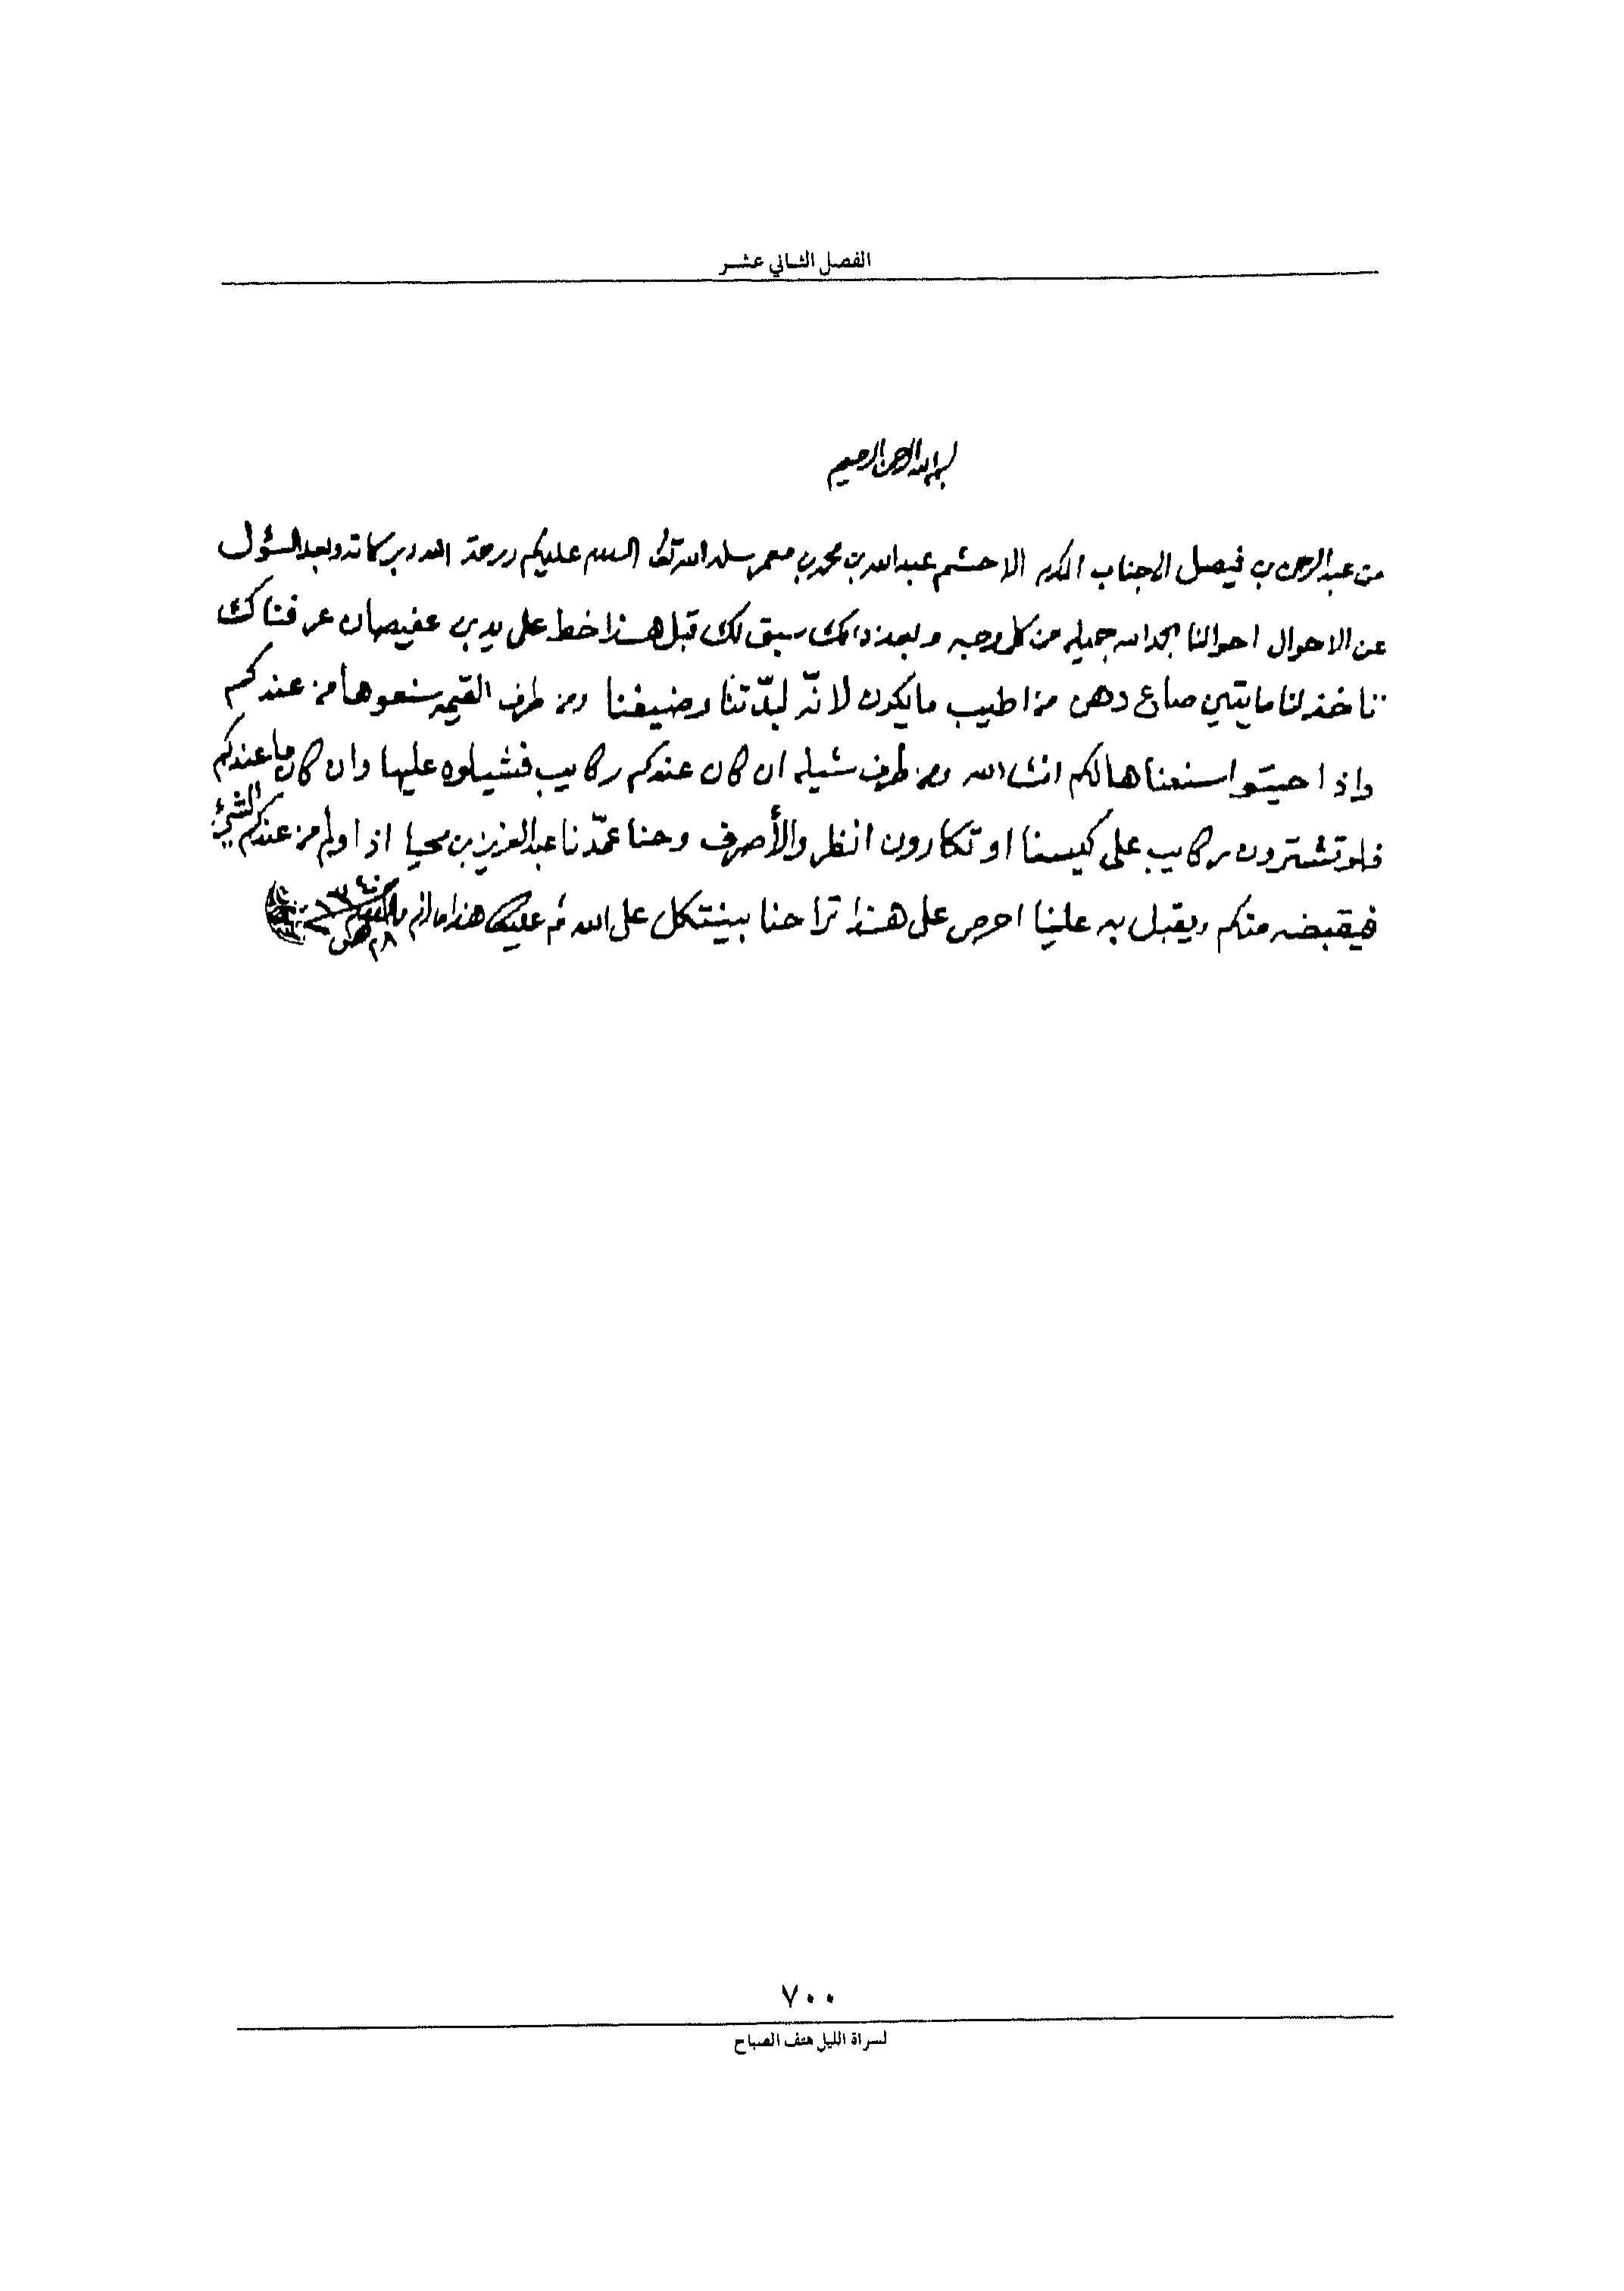 الفصل الثاني عشر
بسم الله الرحمن الرحيم
من عبدالرحمن بن فيصل الا جناب المكرم الاحشم عبدالله بن محمد بن معمر سلمه الله تعالى السلام عليكم ورحمة الله وبركاته وبعد السؤل
عن الاحوال احوالنا بحمد الله جميله من كل وجه وبعد ذالك سبق لك قبل هذا خط على يد بن عفيصان عرفناك
تاخذ لنا مايتين صاع دهن من اطيب مايكون لانه لبدّتنا وضيفنا ومن طرف القيمه سنعوها من عندكم
واذا جيتوا سنعناها لكم انشاء الله ومن طرف شيله ان كان عندكم ركايب فشيلوه عليها وان كان ما عندكم
فلو تشترون ركايب على كيسنا او تكارون انظر والأصرف وحنا عمّدنا عبدالعزيز بن محيا اذا ولم من عندكم الشيء
فيقبضه منكم ويقبل به علينا احرص على هذا ترا حنا بينتكل على الله ثم عليك هذا مالزم والسلام
٧٠٠
لسراة الليل هتف الصباح